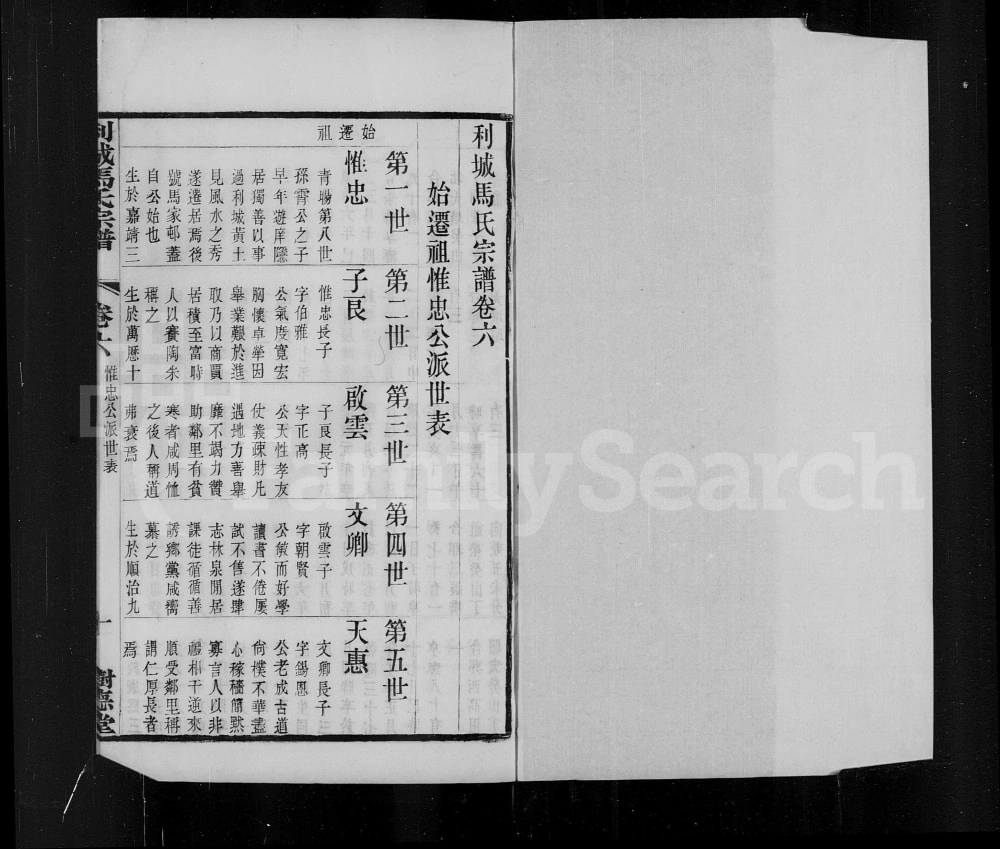 利城馬氏宗譜卷六
始遷祖惟忠公派世表
第一世
第二世
第三世
第四世
第五世
始遷祖
惟忠
青暘第八世
孫霄公之子
早年遊庠隱
居獨善以事
過利城黃土
見風水之秀
遂遷居焉後
號馬家邨蓋
自公始也
生於嘉靖三
子良
惟忠長子
字伯雅
公氣度寬宏
胸懷卓犖因
舉業艱於進
取乃以商賈
居積至富時
人以賽陶朱
稱之
生於萬歷十
啟雲
子良長子
字正高
公天性孝友
仗義疎財凡
遇地方善舉
靡不竭力贊
助鄰里有貧
寒者咸周恤
之後人稱道
弗衰焉
文卿
啟雲子
字朝賢
公慎而好學
讀書不倦屢
試不售遂肆
志林泉閒居
課徒循循善
誘鄉黨咸嚮
慕之
生於順治九
天惠
文卿長子
字錫恩
公老成古道
尚樸不華盡
心稼穡簡默
寡言人以非
禮相干逆來
順受鄰里稱
謂仁厚長者
焉
利城馬氏宗譜
卷六
惟忠公派世表
一
樹德堂
FamilySearch